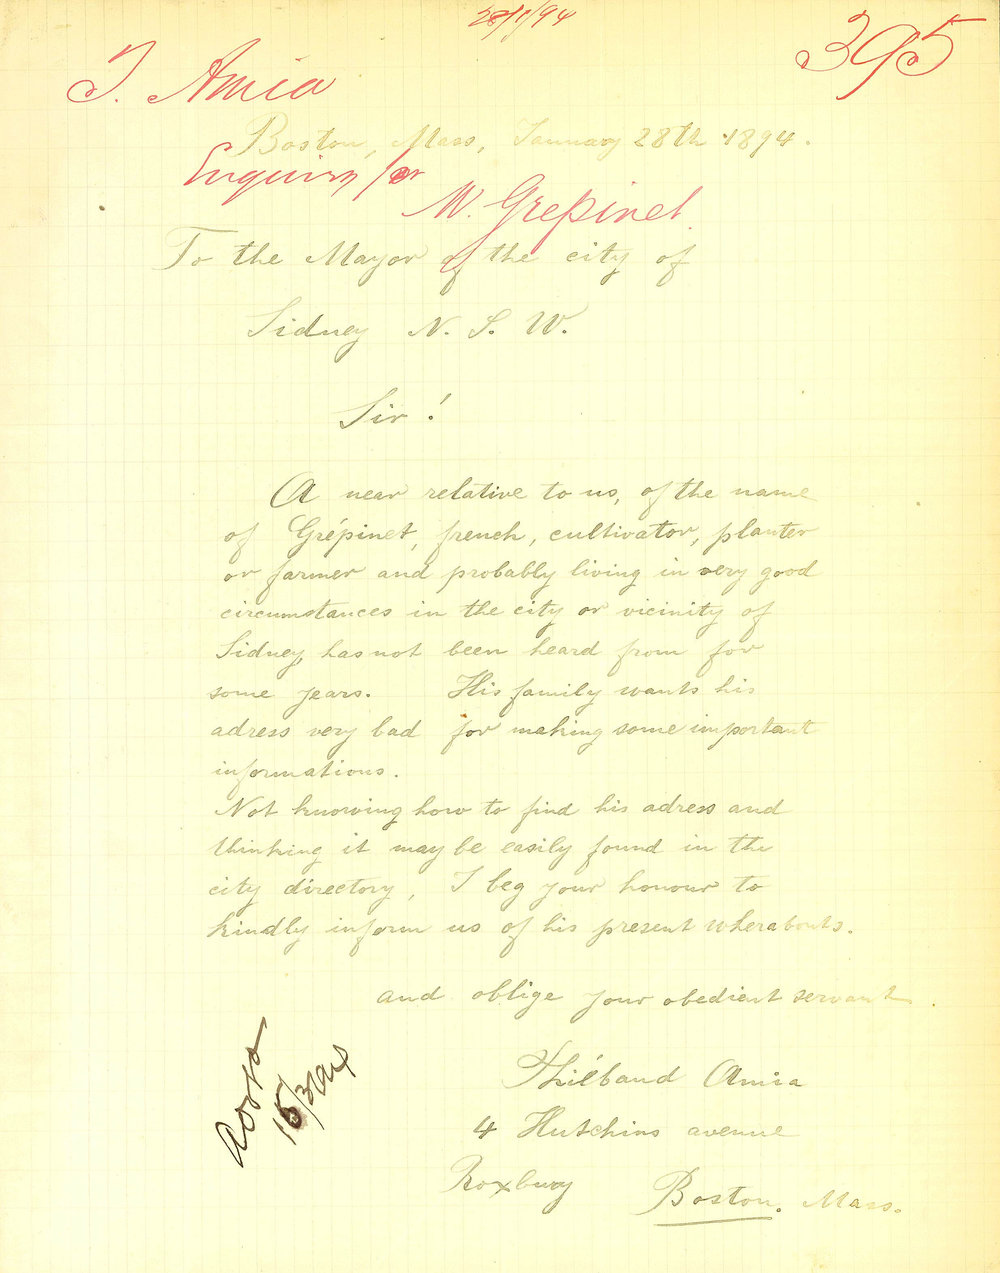 28/1/94
395
T. Amia
Boston, Mass, January 28th 1894.
Enquiry for
M. Grepinet.
To the Mayor of the city of
Sidney N. S. W.
Sir!
A near relative to us, of the name
of Grépinet, french, cultivator, planter
or farmer and probably living in very good
circumstances in the city or vicinity of
Sidney, has not been heard from for
some years. His family wants his
adress very bad for making some important
informations.
Not knowing how to find his adress and
thinking it may be easily found in the
city directory, I beg your honour to
kindly inform us of his present wherabouts.
and oblige your obedient servant.
Thiébaud Amia
4 Hutchins avenue
Roxbury Boston. Mass.